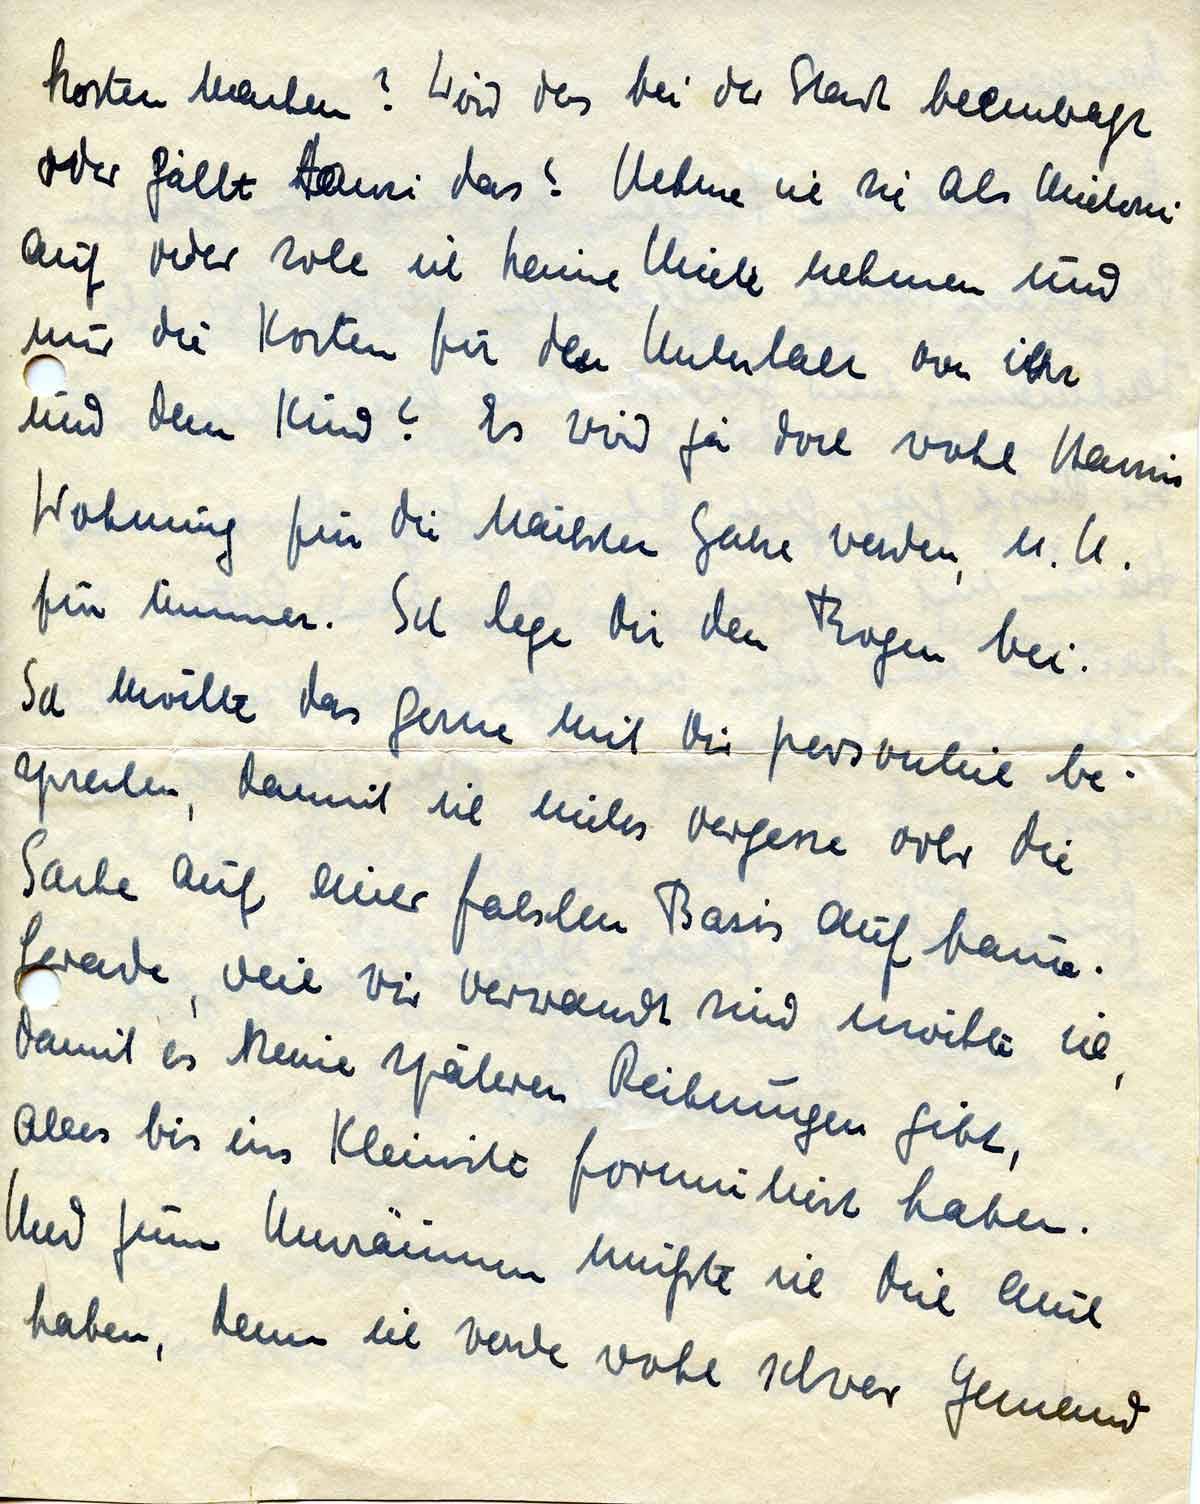 kosten machen? Wird das bei der Stadt beantragt
oder zählt Hanni das? Nehme ich sie als Mieterin
auf oder soll ich keine Miete nehmen und
nur die Kosten für den Unterhalt von ihr
und dem Kind? Es wird ja doch wohl Hannis
Wohnung für die nächsten Jahre werden, u. U.
für immer. Ich lege Dir den Bogen bei.
Ich möchte das gerne mit Dir persönlich be-
sprechen, damit ich nichts vergesse oder die
Sache auf einer falschen Basis aufbaue.
Gerade, weil wir verwandt sind möchte ich,
damit es keine späteren Reibungen gibt,
alles bis ins Kleinste formuliert haben.
Und zum Umräumen müßte ich Dich auch
haben, denn ich werde wohl schwer Jemand